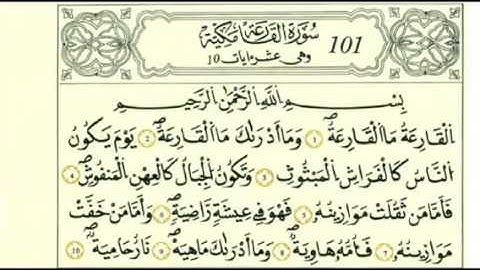 سُوْرَةُ الْقَارِعَةِ مَكِّيَّة 101
وهى عشرة ايات 10
بِسْمِ اللهِ الرَّحْمٰنِ الرَّحِيْمِ
اَلْقَارِعَةُ مَا الْقَارِعَةُ 1 وَمَا اَدْرٰىكَ مَا الْقَارِعَةُ 2 يَوْمَ يَكُوْنُ
النَّاسُ كَالْفَرَاشِ الْمَبْثُوْثِ 3 وَتَكُوْنُ الْجِبَالُ كَالْعِهْنِ الْمَنْفُوْشِ 4
فَاَمَّا مَنْ ثَقُلَتْ مَوَازِيْنُهُ 5 فَهُوَ فِيْ عِيْشَةٍ رَّاضِيَةٍ 6 وَاَمَّا مَنْ خَفَّتْ
مَوَازِيْنُهُ 7 فَاُمُّهُ هَاوِيَةٌ 8 وَمَا اَدْرٰىكَ مَاهِيَهْ 9 نَارٌ حَامِيَةٌ 10